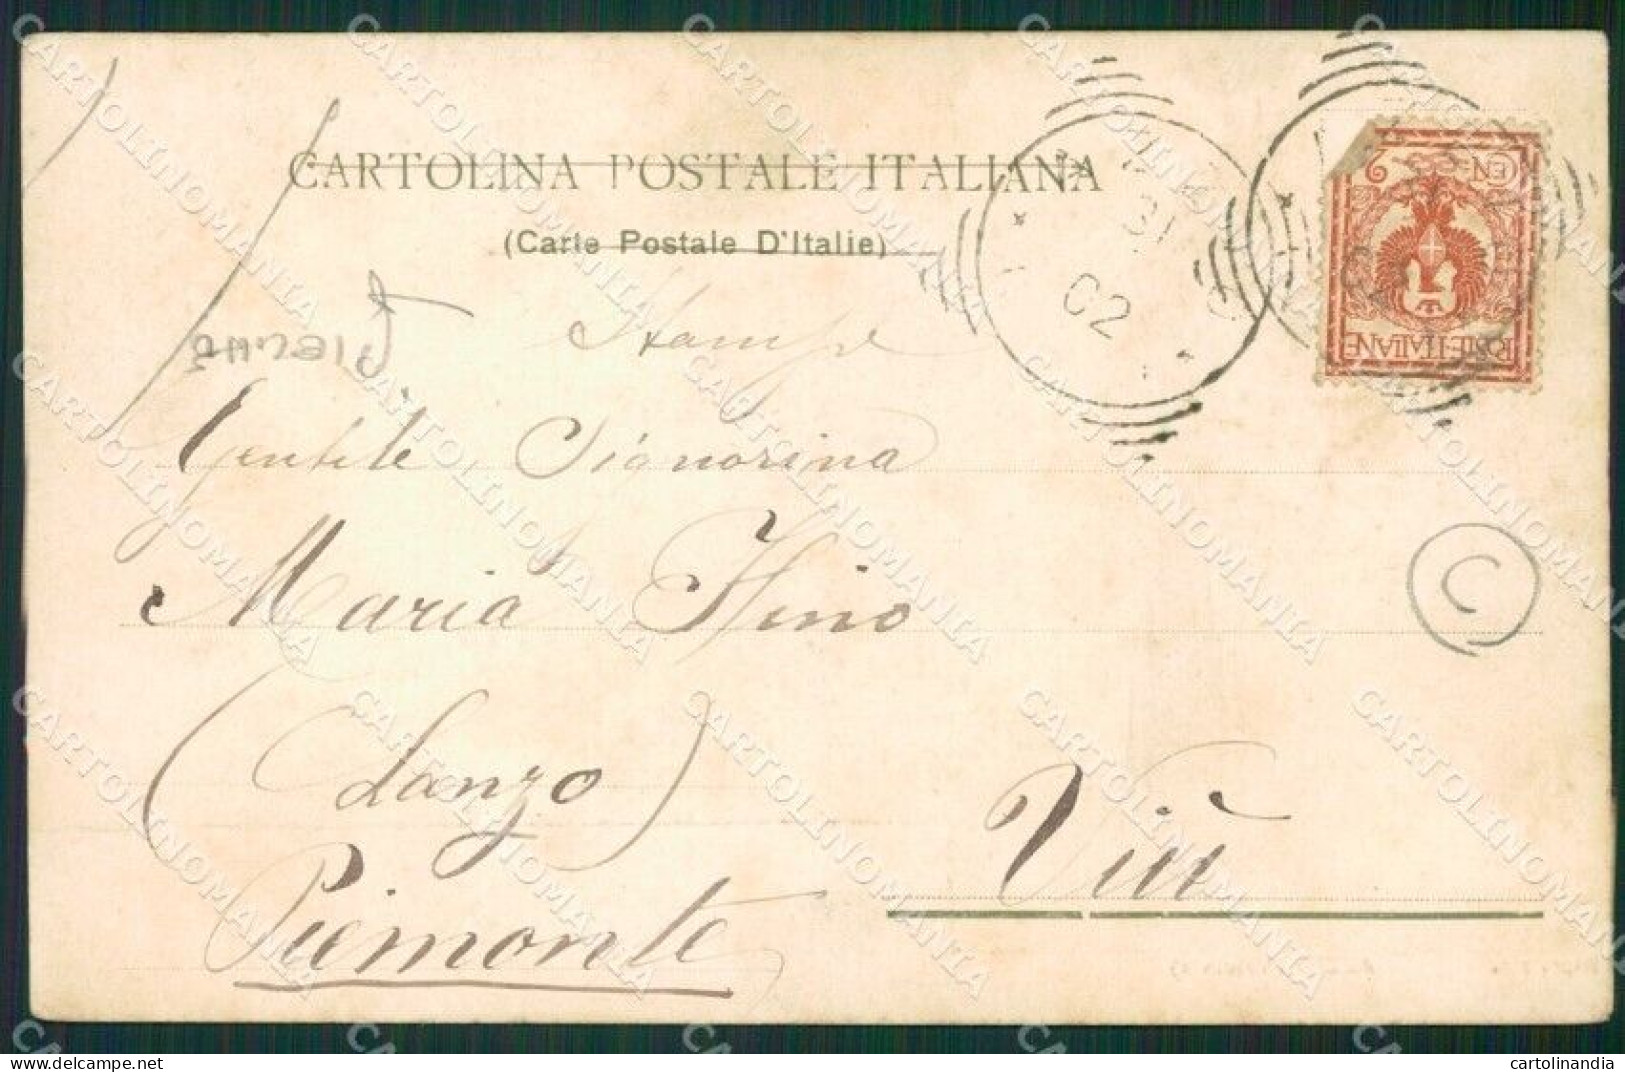 CARTOLINA POSTALE ITALIANA
(Carte Postale D'Italie)
Stampe
Gentile Signorina
Maria Fino
(Lanzo)
Piemonte
Viù
C
02
CEN 2
POSTE ITALIANE
cartolinandia